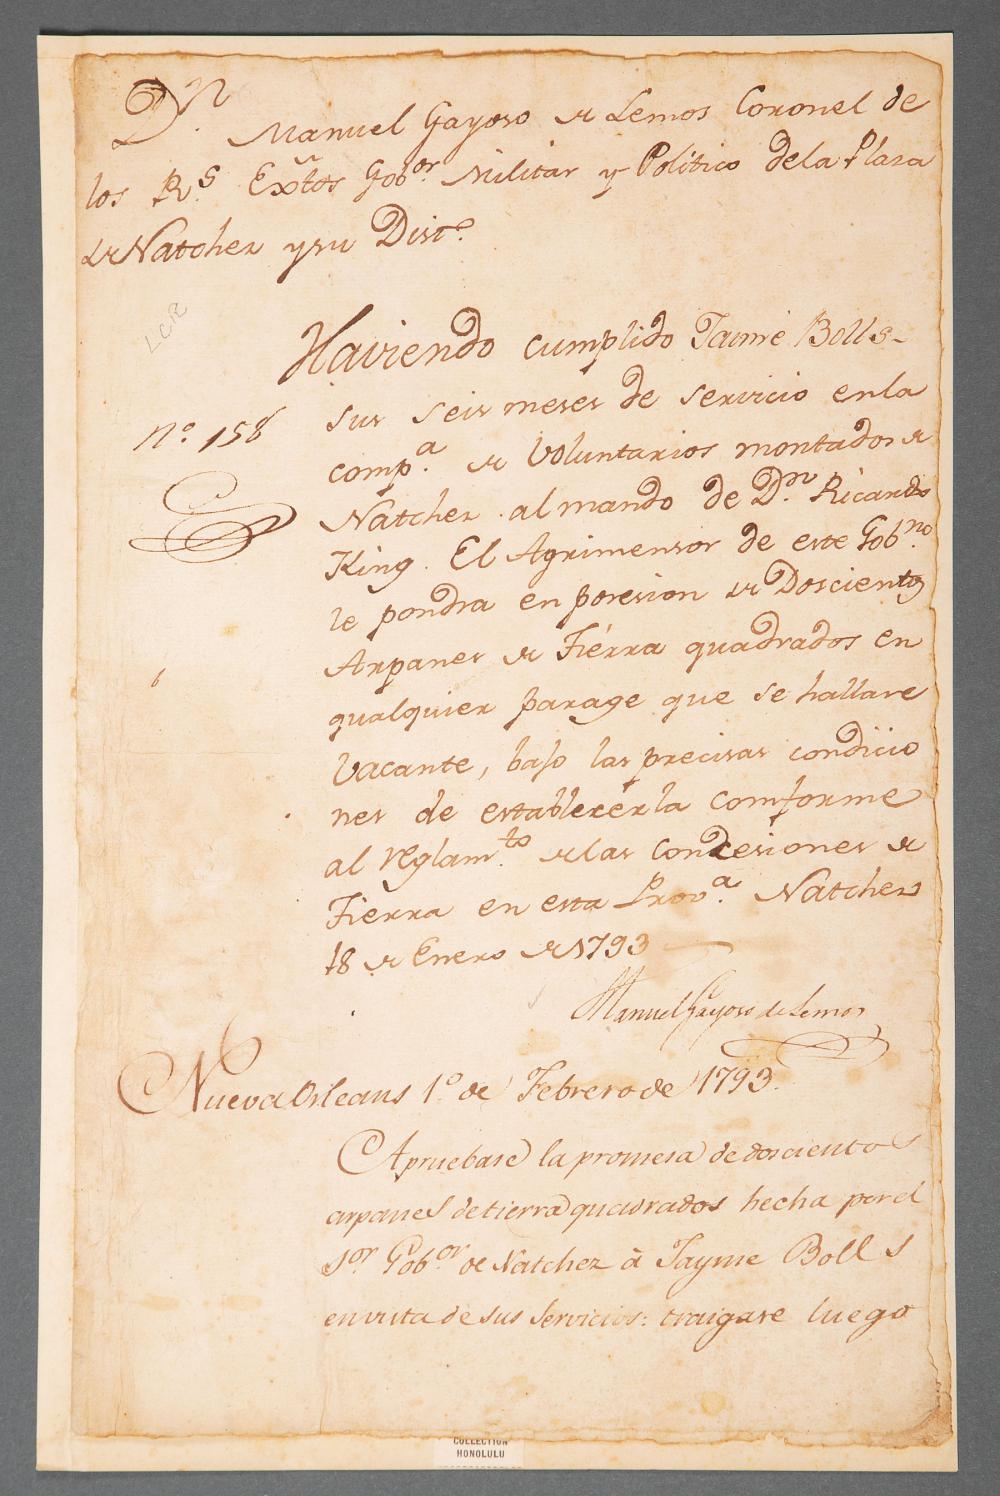 Dn. Manuel Gayoso de Lemos Coronel de
los Rs. Extos Gobor Militar y Politico dela Plaza
de Natchez y su Disto.
LCR
Haviendo cumplido Jaime Bolls
No. 158
sus seis meses de servicio en la
compa. de Voluntarios montados de
Natchez al mando de Dn. Ricardo
King. El Agrimensor de este Gobno.
le pondra en posesion de Doscientos
Arpanes de Tierra quadrados en
qualquier parage que se hallare
Vacante, bajo las precisas condicio
nes de establecerla comforme
al reglamto. de las Concesiones de
Tierra en esta Prova. Natchez
18 de Enero de 1793
Manuel Gayoso de Lemos
Nueva Orleans 1o. de Febrero de 1793.
Apruebase la promesa de doscientos
arpanes de tierra quadrados hecha por el
Sor Gobor de Natchez à Jayme Bolls
en vista de sus Servicios: traigase luego
COLLECTION
HONOLULU